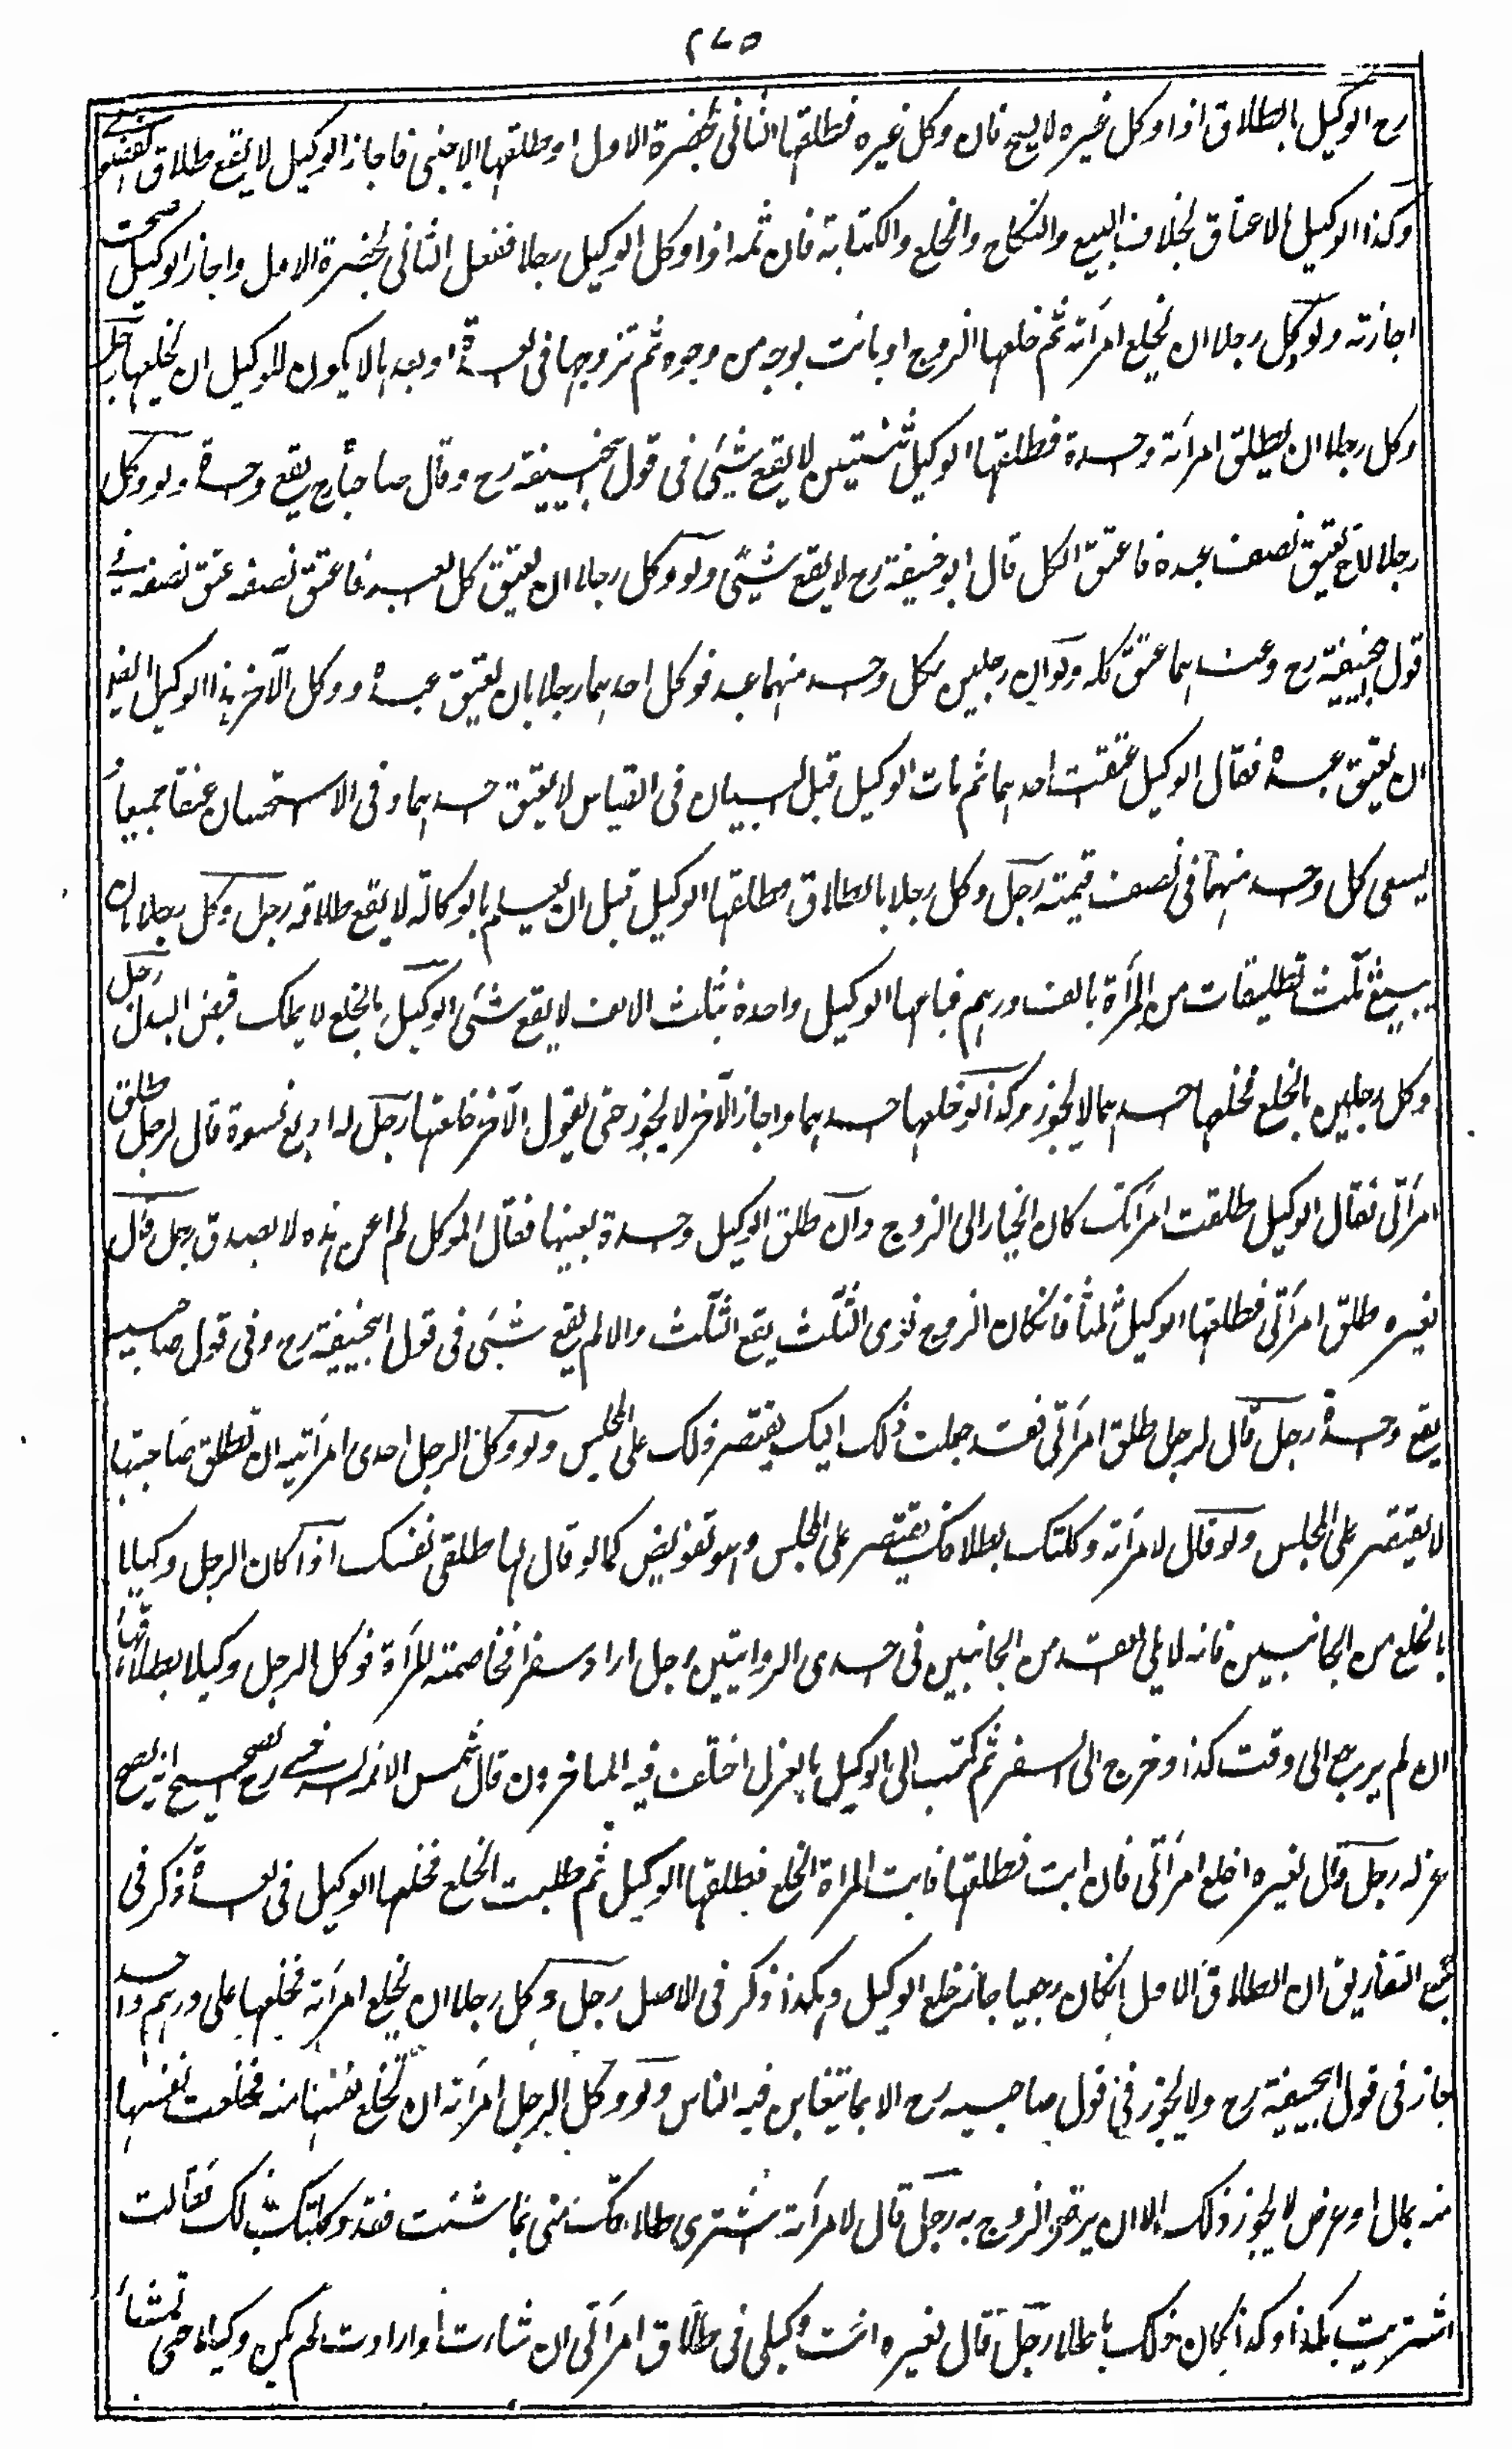 ٢٧٥
رح الوكيل بالطلاق اذا وكل غيره لا يصح فان وكل غيره فطلقها الثانى بحضرة الاول او طلقها الاجنبى فاجاز الوكيل لا يقع طلاق
وكذا الوكيل بالاعتاق بخلاف البيع والنكاح والخلع والكتابة فان ثمه اذا وكل الوكيل رجلا ففعل الثانى بحضرة الاول واجاز الوكيل صحت
اجازته ولو وكل رجلا ان يخلع امرأته ثم خلعها الزوج او بانت بوجه من وجوه ثم تزوجها فى العدة او بعدها لا يكون للوكيل ان يخلعها رجل
وكل رجلا ان يطلق امرأته واحدة فطلقها الوكيل ثنتين لا يقع شيئ فى قول ابيحنيفة رح وقال صاحباه رح يقع واحدة ولو وكل
رجلا لان يعتق نصف عبده فاعتق الكل قال ابو حنيفة رح لا يقع شيئ ولو وكل رجلا ان يعتق كل العبد فاعتق نصفه عتق نصفه فى
قول ابيحنيفة رح وعندهما عتق كله ولو ان رجلين لكل واحد منهما عبد فوكل احدهما رجلا بان يعتق عبده ووكل الآخر هذا الوكيل ايضا
ان يعتق عبده فقال الوكيل اعتقت احدهما ثم مات الوكيل قبل البيان فى القياس لا يعتق احدهما وفى الاستحسان عتقا جميعا و
يسعى كل واحد منهما فى نصف قيمته رجل وكل رجلا بالطلاق فطلقها الوكيل قبل ان يعلم بالوكالة لا يقع طلاقه رجل وكل رجلا بان
يبيع ثلث تطليقات من المرأة بالف درهم فباعها الوكيل واحدة بثلث الالف لا يقع شئ الوكيل بالخلع لا يملك قبض البدل رجل
وكل رجلين بالخلع فخلعها احدهما لا يجوز وكذا لو خلعها احدهما واجاز الآخر لا يجوز حتى يقول الآخر خلعتها رجل له اربع نسوة قال لرجل طلق
امرأتى فقال الوكيل طلقت امرأتك كان الخيار الى الزوج وان طلق الوكيل واحدة بعينها فقال الموكل لم اعن هذه لا يصدق رجل قال
لغيره طلق امرأتى فطلقها الوكيل ثلثا فان كان الزوج نوى الثلث يقع الثلث والا لم يقع شئ فى قول ابيحنيفة رح وفى قول صاحبيه
يقع واحدة رجل قال لرجل طلق امرأتى فقد جعلت ذلك اليك يقتصر ذلك على المجلس ولو وكل الرجل احدى امرأتيه ان تطلق صاحبتها
لا يقتصر على المجلس ولو قال لامرأته وكلتك بطلاقك يقتصر على المجلس وهو تفويض كما لو قال لها طلقى نفسك اذا كان الرجل وكيلا
بالخلع من الجانبين فانه لا يلى العقد من الجانبين فى احدى الروايتين رجل اراد سفرا فخاصمته المرأة فوكل الرجل وكيلا بطلاقها
ان لم يرجع الى وقت كذا وخرج الى السفر ثم كتب الى الوكيل بالعزل اختلف فيه المتاخرون قال شمس الائمة السرخسى رح الصحيح انه يصح
عزله رجل قال لغيره اخلع امرأتى فان ابت فطلقها فابت المرأة الخلع فطلقها الوكيل ثم طلبت الخلع فخلعها الوكيل فى العدة ذكر فى
جمع التفاريق ان الطلاق الاول ان كان رجعيا جاز خلع الوكيل وهكذا ذكر فى الاصل رجل وكل رجلا ان يخلع امرأته فخلعها على درهم واحد
جاز فى قول ابيحنيفة رح ولا يجوز فى قول صاحبيه رح الا بما يتغابن فيه الناس ولو وكل الرجل امرأته ان تخلع نفسها منه فخلعت نفسها
منه بمال او عرض لا يجوز ذلك الا ان يرضى الزوج به رجل قال لامرأته اشترى طلاقك منى بما شئت فقد وكلتك بذلك فقالت
اشتريت بكذا وكذا كان ذلك باطلا رجل قال لغيره انت وكيلى فى طلاق امرأتى ان شاءت او ارادت لم يكن وكيلا حتى تشاء